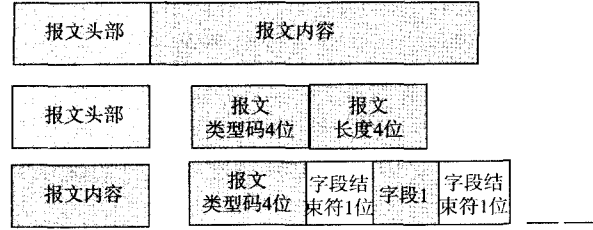 报文头部 报文内容
报文头部 报文 类型码4位 报文 长度4位
报文内容 报文 类型码4位 字段结 束符1位 字段1 字段结 束符1位